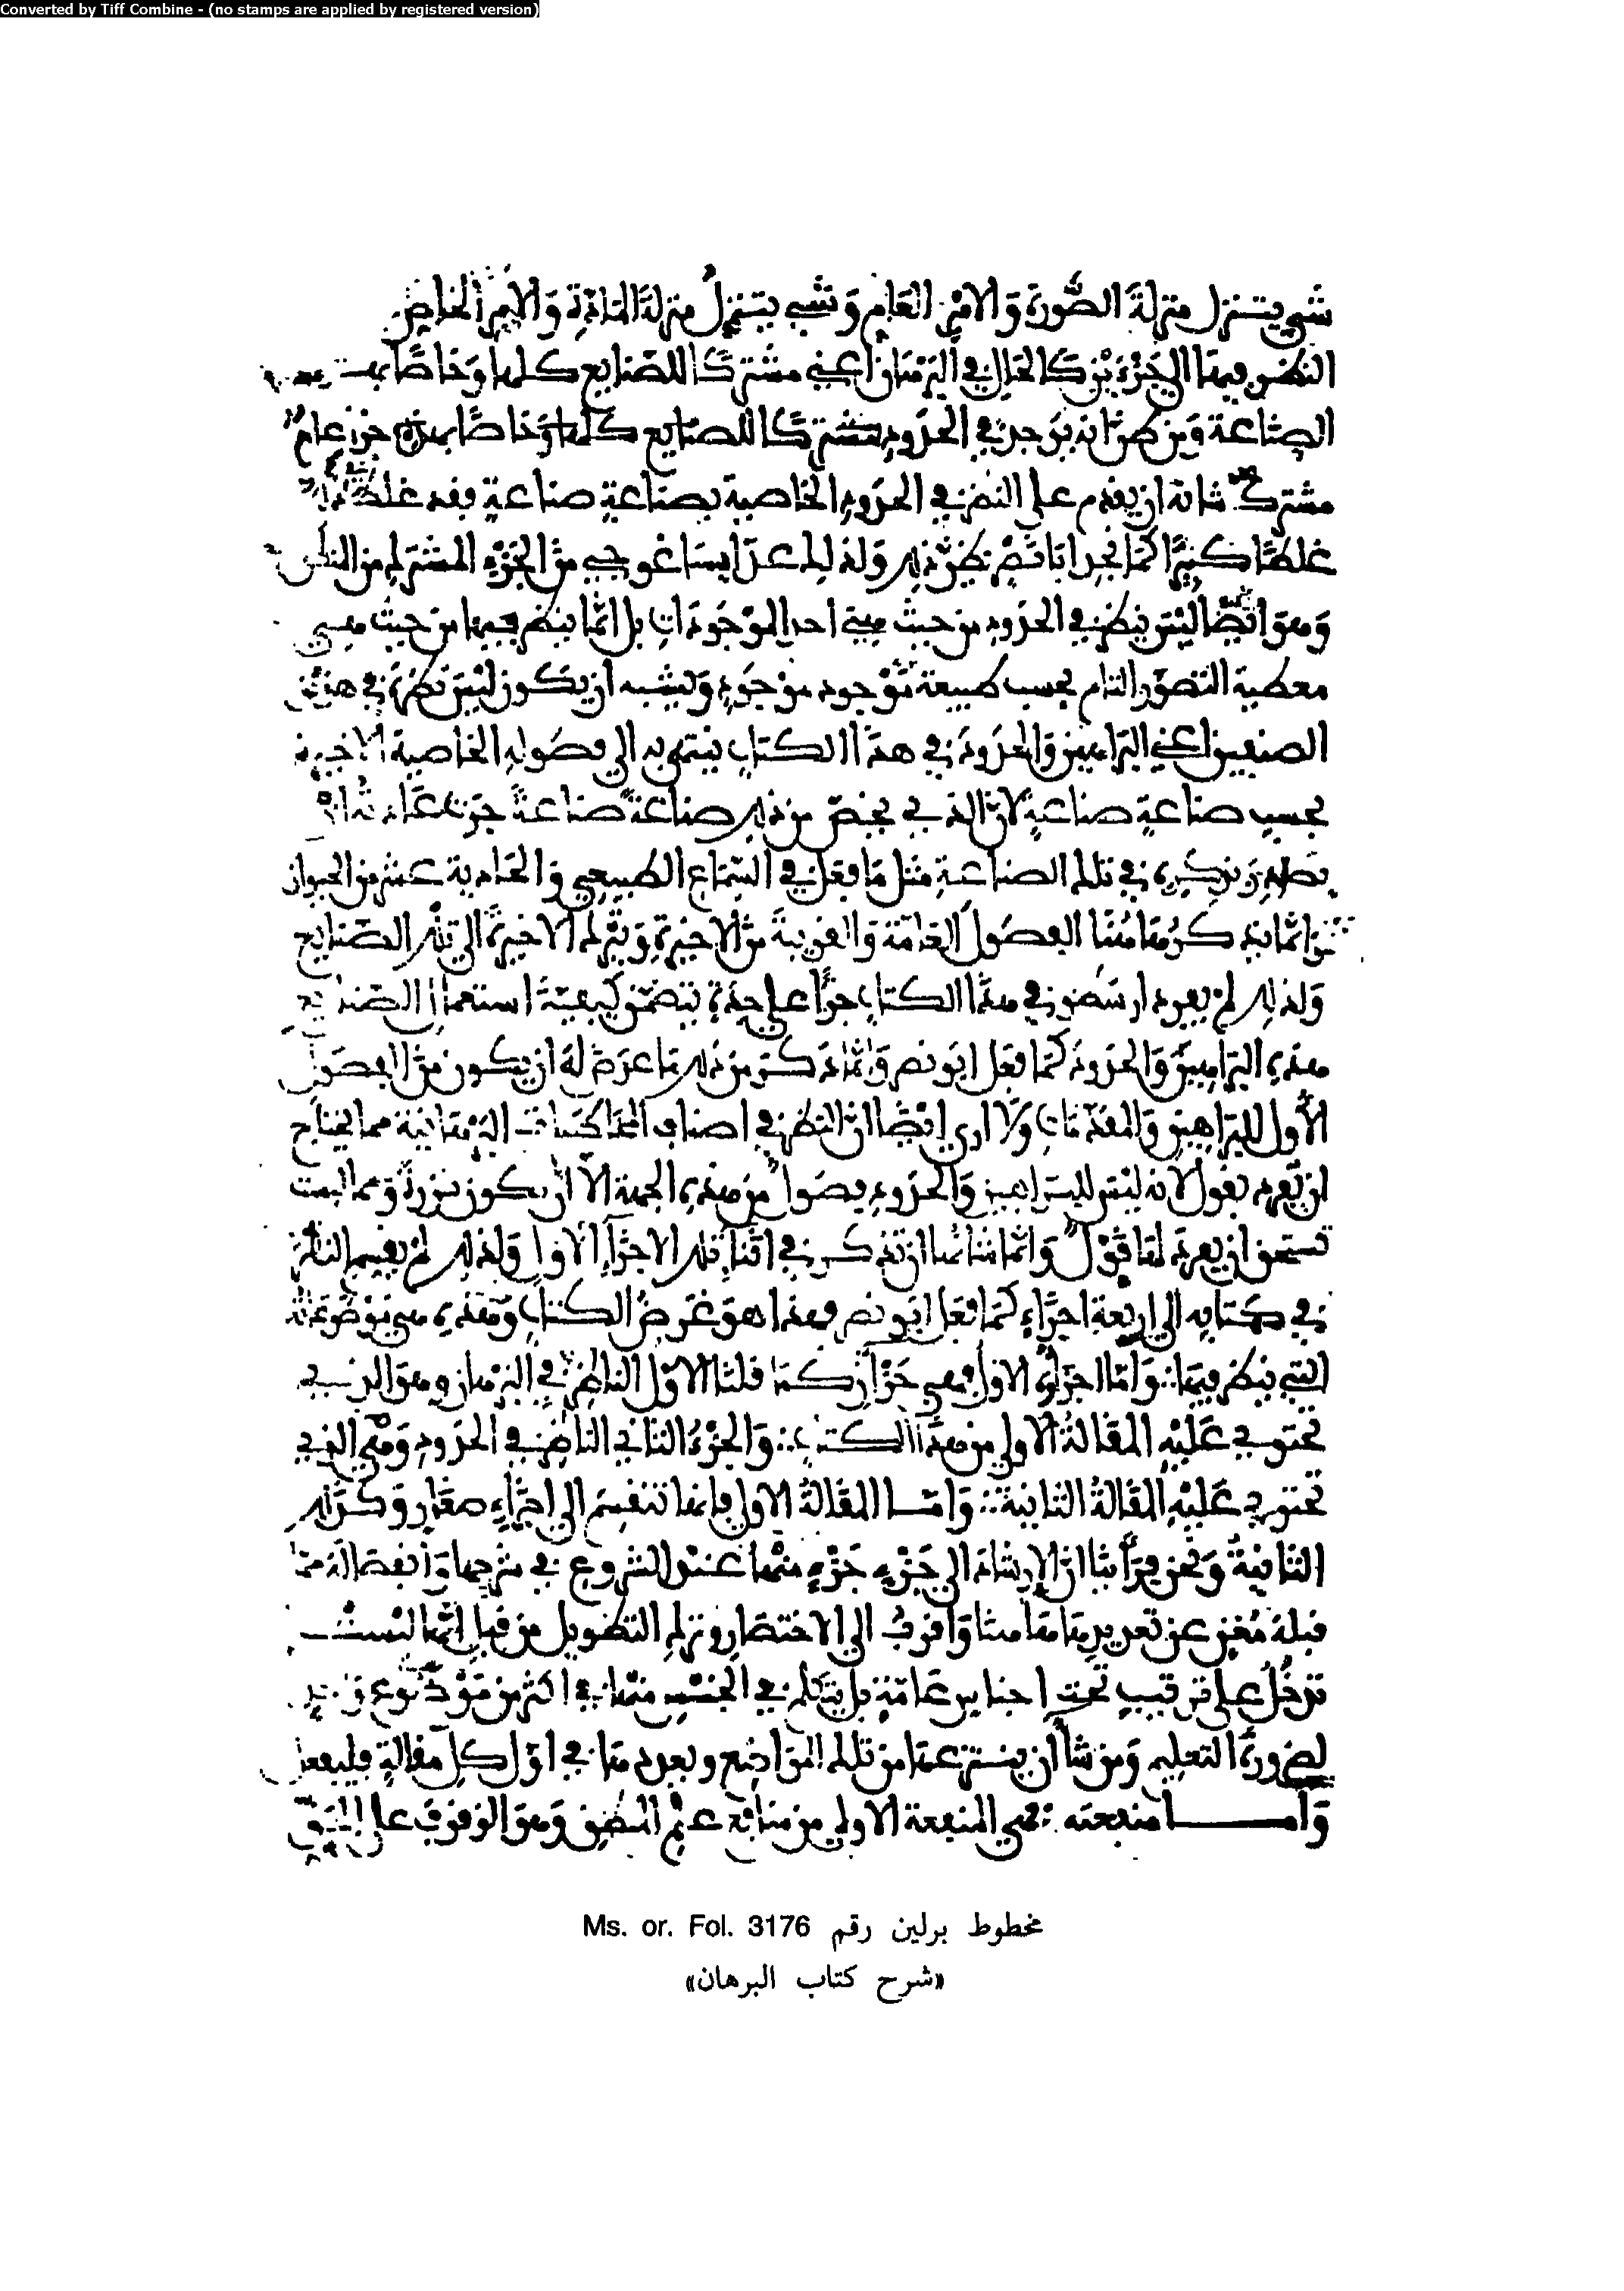 Converted by Tiff Combine - (no stamps are applied by registered version)
شي يتنزل منزلة الصورة والامر العام وشي يتنزل منزلة المادة والامر الخاص
النظر فيها الى جزءين كالحال في البرهان اعني مشتركا للصنايع كلها وخاصا
الصناعة ومن ظن انه يوجد في الحدود مشتركا للصنايع كلها وخاصا جزء عام
مشترك شانه ان يقدم على النظر في الحدود الخاصية بصناعة صناعة فقد غلط
غلطا كبيرا كما نجد ابا نصر يظن ذلك ولذلك عد ايساغوجي من الجزء المشترك من النظر
وهو ايضا ليس ينظر في الحدود من حيث هي احد الموجودات بل انما ينظر فيها من حيث هي
معطية التصور التام بحسب طبيعة موجود موجود ويشبه ان يكون ليس نظره في هذين
الصنفين اعني البراهين والحدود في هذا الكتاب ينتهي به الى فصوله الخاصية الاخيرة
بحسب صناعة صناعة لان الذي يخص من ذلك صناعة صناعة جرت عادته ان
في تلك الصناعة مثل ما فعل في السماع الطبيعي والحادية عشر من الحيوان
انما يذكر هاهنا الفصول العامة والقريبة من الاخيرة ويترك الاخيرة الى تلك الصنايع
ولذلك لم يفرد ارسطو في هذا الكتاب جزءا على حدة يتضمن كيفية استعمال الصنايع
هذه البراهين والحدود كما فعل ابو نصر وانما ذكر من ذلك ما عرض له ان يكون من الفصول
الاول للبراهين والمقدمات ولا ارى ايضا ان النظر في اصناف المخاطبات البرهانية مما يحتاج
ان يفرد بقول لانه ليس للبراهين والحدود فصولا من هذه الجهة الا ان يكون نزرة ومما ليست
تستحق ان يفرد لها قول وانما شانها ان تذكر في اثناء تلك الاجزاء الاول ولذلك لم يقسم النظر
في كتابه الى اربعة اجزاء كما فعل ابو نصر فهذا هو غرض الكتاب وهذه هي موضوعاته
التي ينظر فيها واما اجزاؤه الاول فهي جزءان كما قلنا الاول الناظر في البرهان وهو الذي
تحتوي عليه المقالة الاولى من هذا الكتاب والجزء الثاني الناظر في الحدود وهي الذي
تحتوي عليه المقالة الثانية واما المقالة الاولى فانها تنقسم الى اجزاء صغار وكذلك
الثانية ونحن فراينا ان الارشاد الى جزء جزء منها عند الشروع في شرحها وانفصاله مما
قبله مغن عن تعريفها هاهنا واقرب الى الاختصار وترك التطويل من قبل انها ليست
تدخل على ترتيب تحت اجناس عامة بل يتكلم في الجنس منها في اكثر من موضع
لضرورة التعليم ومن شا ان ينتزعها من تلك المواضع ويعددها في اول كل مقالة فليفعل
واما منفعته فهي المنفعة الاولى من منافع علم المنطق وهو الوقوف على الحق
مخطوط برلين رقم Ms. or. Fol. 3176
«شرح كتاب البرهان»